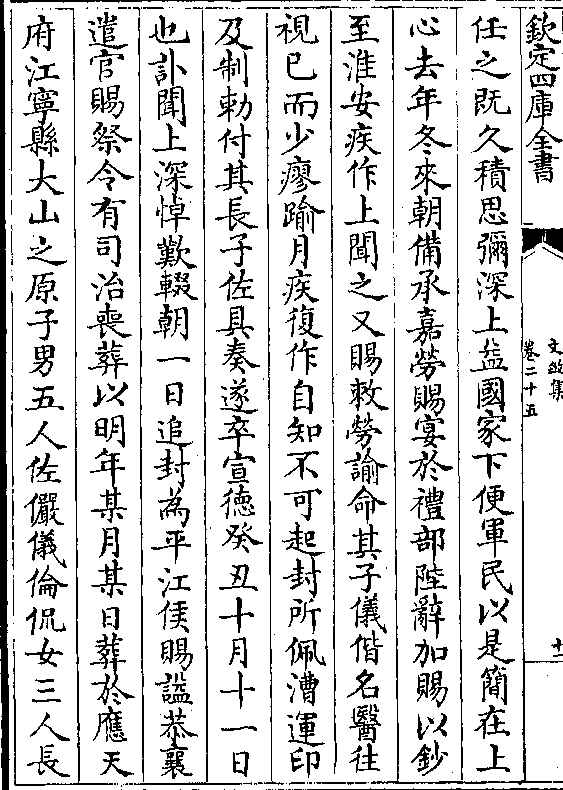 欽定四庫全書
文敏集
卷二十五
十二
任之既久積思彌深上益國家下便軍民以是簡在上
心去年冬來朝備承嘉勞賜宴於禮部陛辭加賜以鈔
至淮安疾作上聞之又賜敕勞諭命其子儀偕名醫往
視已而少瘳踰月疾復作自知不可起封所佩漕運印
及制勅付其長子佐具奏遂卒宣德癸丑十月十一日
也訃聞上深悼歎輟朝一日追封為平江侯賜諡恭襄
遣官賜祭令有司治喪葬以明年某月某日葬於應天
府江寧縣大山之原子男五人佐儼儀倫侃女三人長